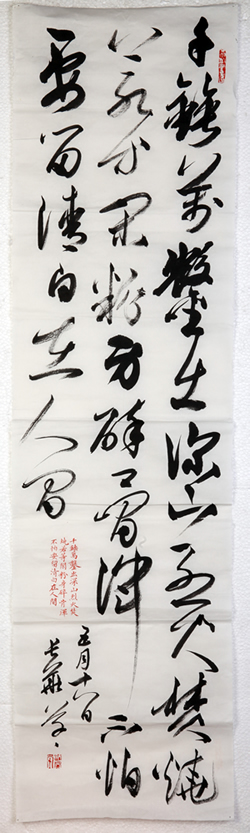 千錘萬鑿出深山烈火焚燒
若等閒粉身碎骨渾不怕
要留清白在人間
千錘萬鑿出深山烈火焚
燒若等閒粉身碎骨渾
不怕要留清白在人間
五月十六日